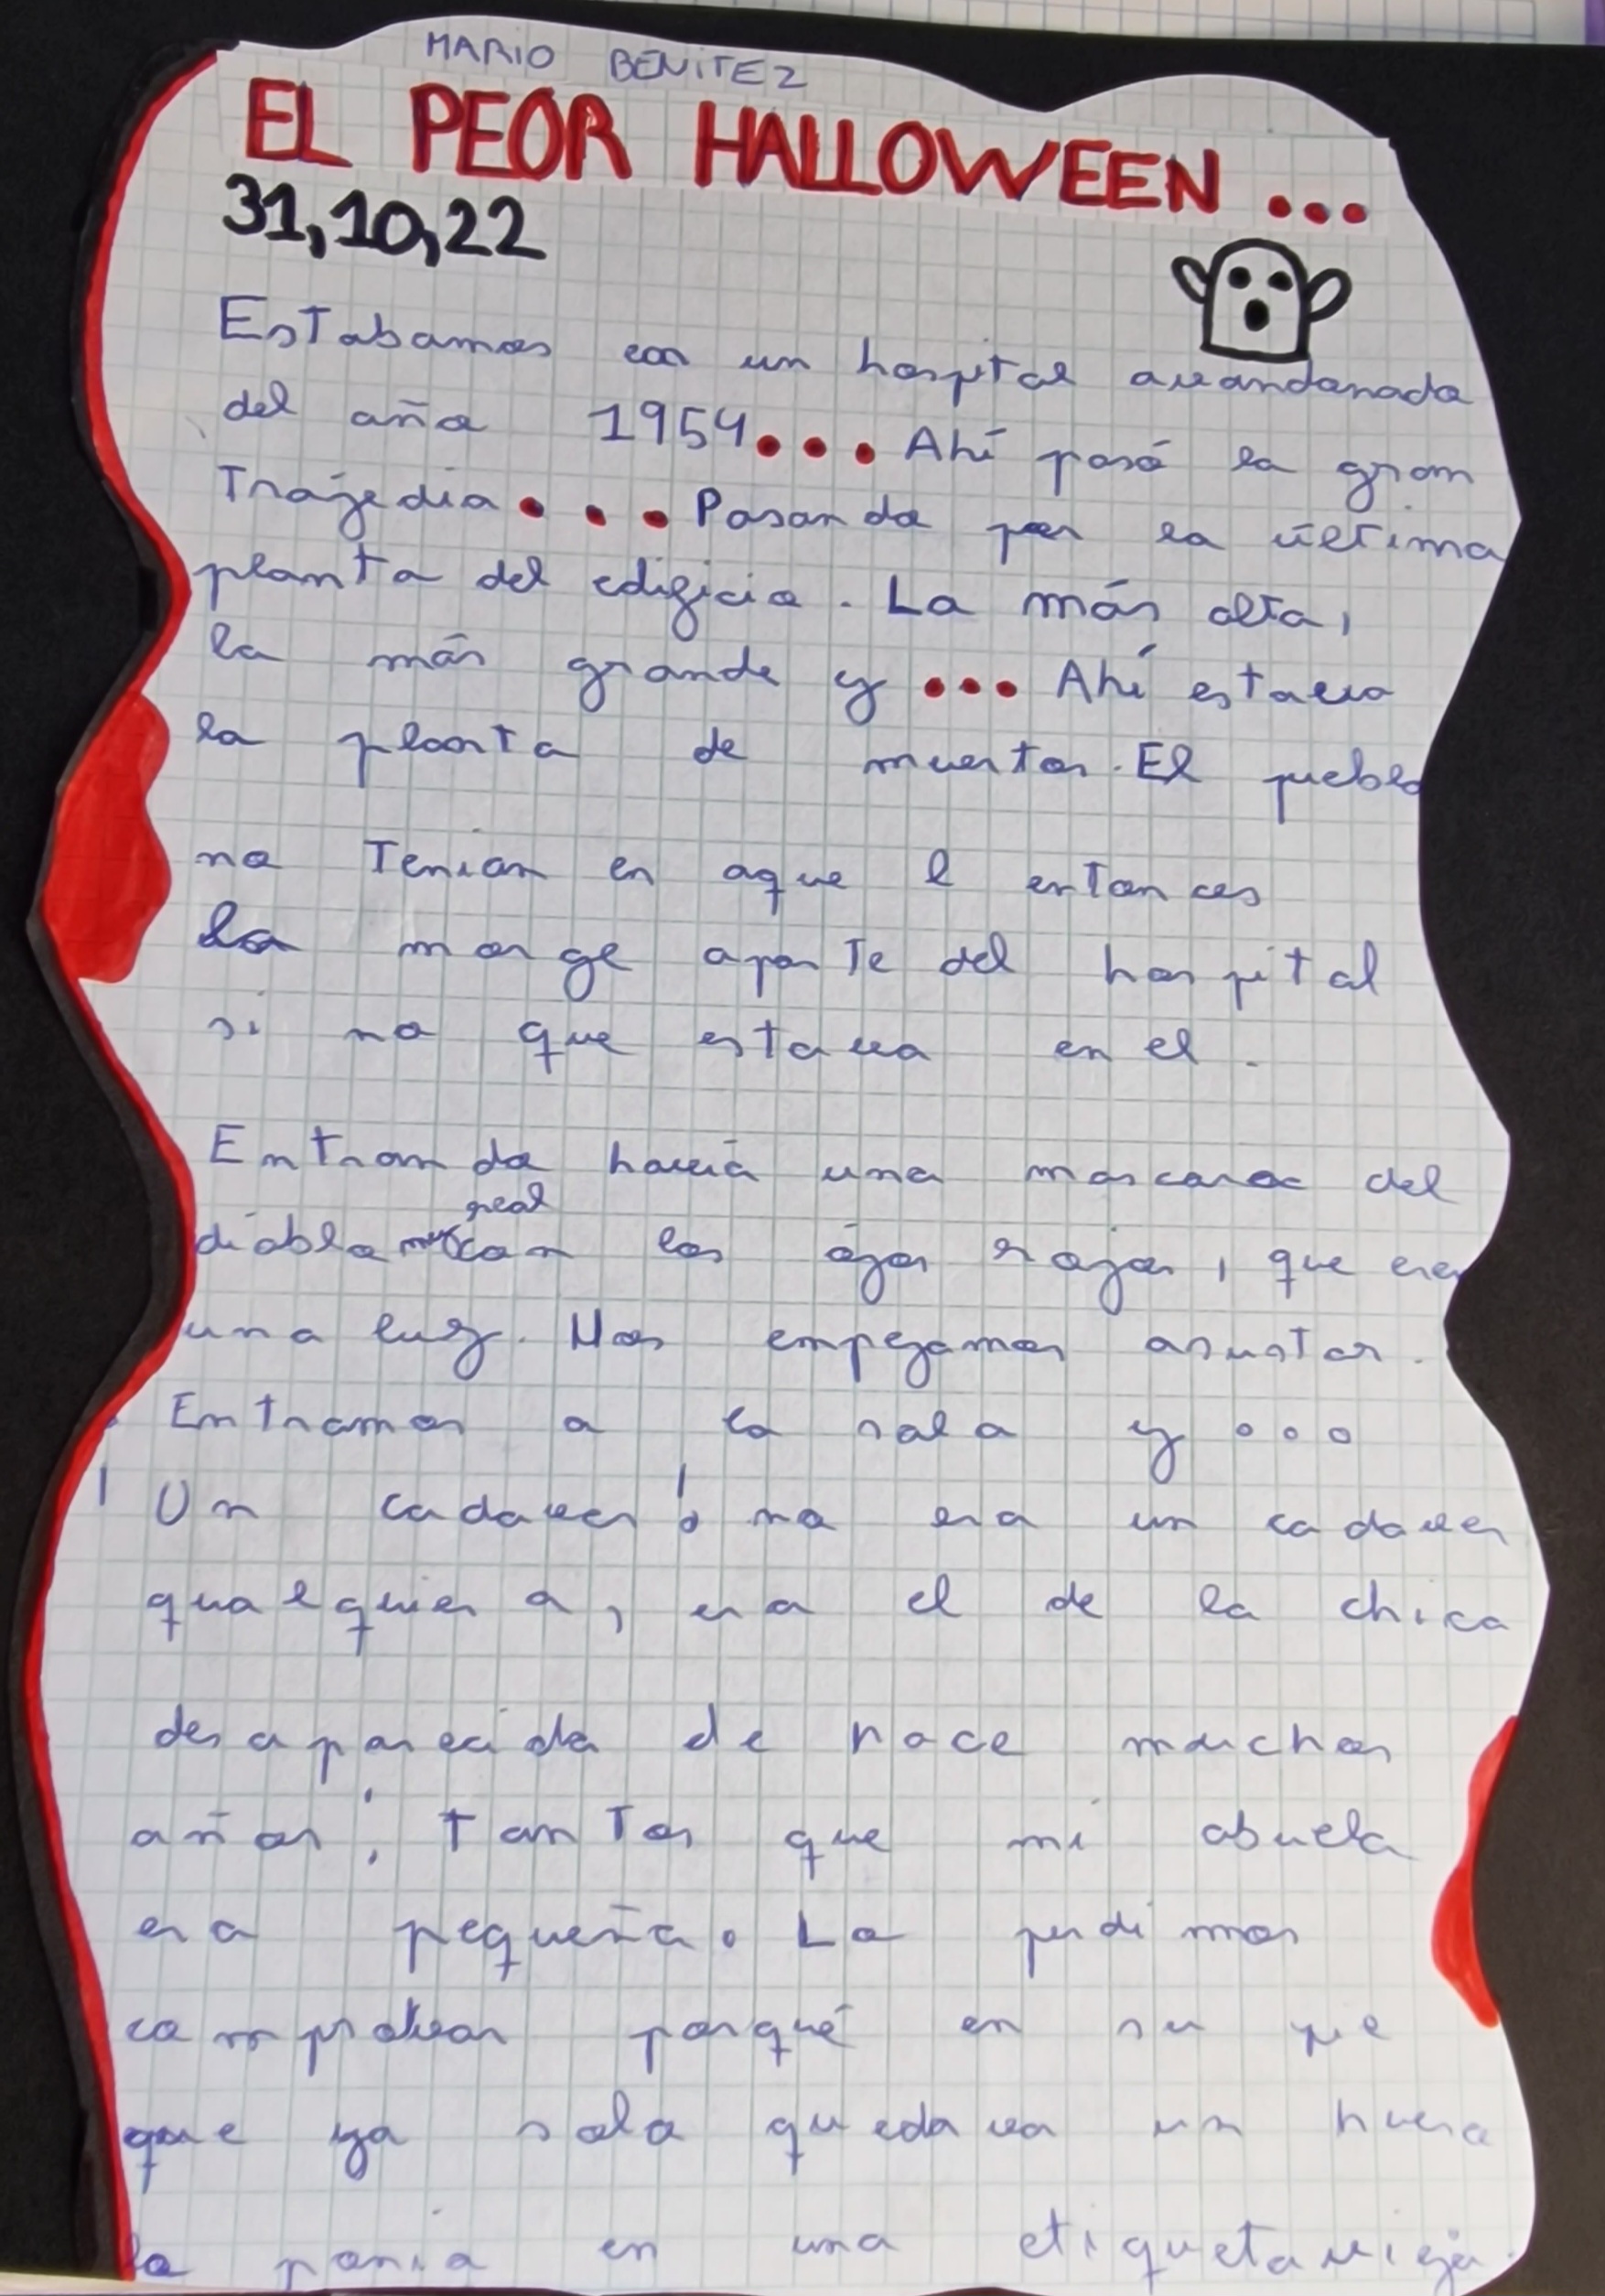 MARIO BENITEZ
EL PEOR HALLOWEEN ...
31,10,22
Estabamos en un hospital avandonado
del año 1954... Ahí pasó la gran
Trajedia... Pasando por la última
planta del edificio. La más alta,
la más grande y ... Ahí estava
la planta de muertos. El pueblo
no Tenian en aquel entonces
la morge aparte del hospital
si no que estava en el.
Entrando havia una mascara del
diablo muy real con los ojos rojos, que era
una luz. Nos empezamos asustar.
Entramos a la sala y ...
¡Un cadaver! no era un cadaver
qualquiera, era el de la chica
desaparecida de hace muchos
años; Tantos que mi abuela
era pequeña. La pudimos
comprovar porqué en su pie
que ya solo quedava un hueso
lo ponia en una etiqueta vieja.